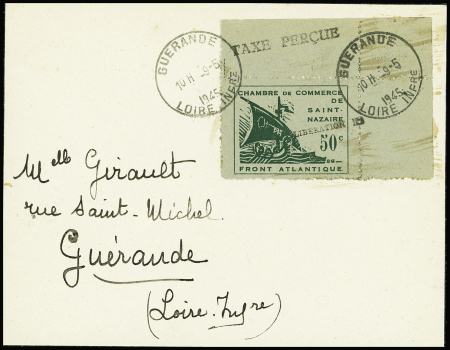 GUERANDE
10 H 9-5
1945
LOIRE INFRE
TAXE PERÇUE
GUERANDE
10 H 9-5
1945
LOIRE INFRE
CHAMBRE DE COMMERCE
DE
SAINT-
NAZAIRE
LIBERATION
50c
FRONT ATLANTIQUE
Melle Girault
rue Saint-Michel
Guérande
(Loire-Infre)